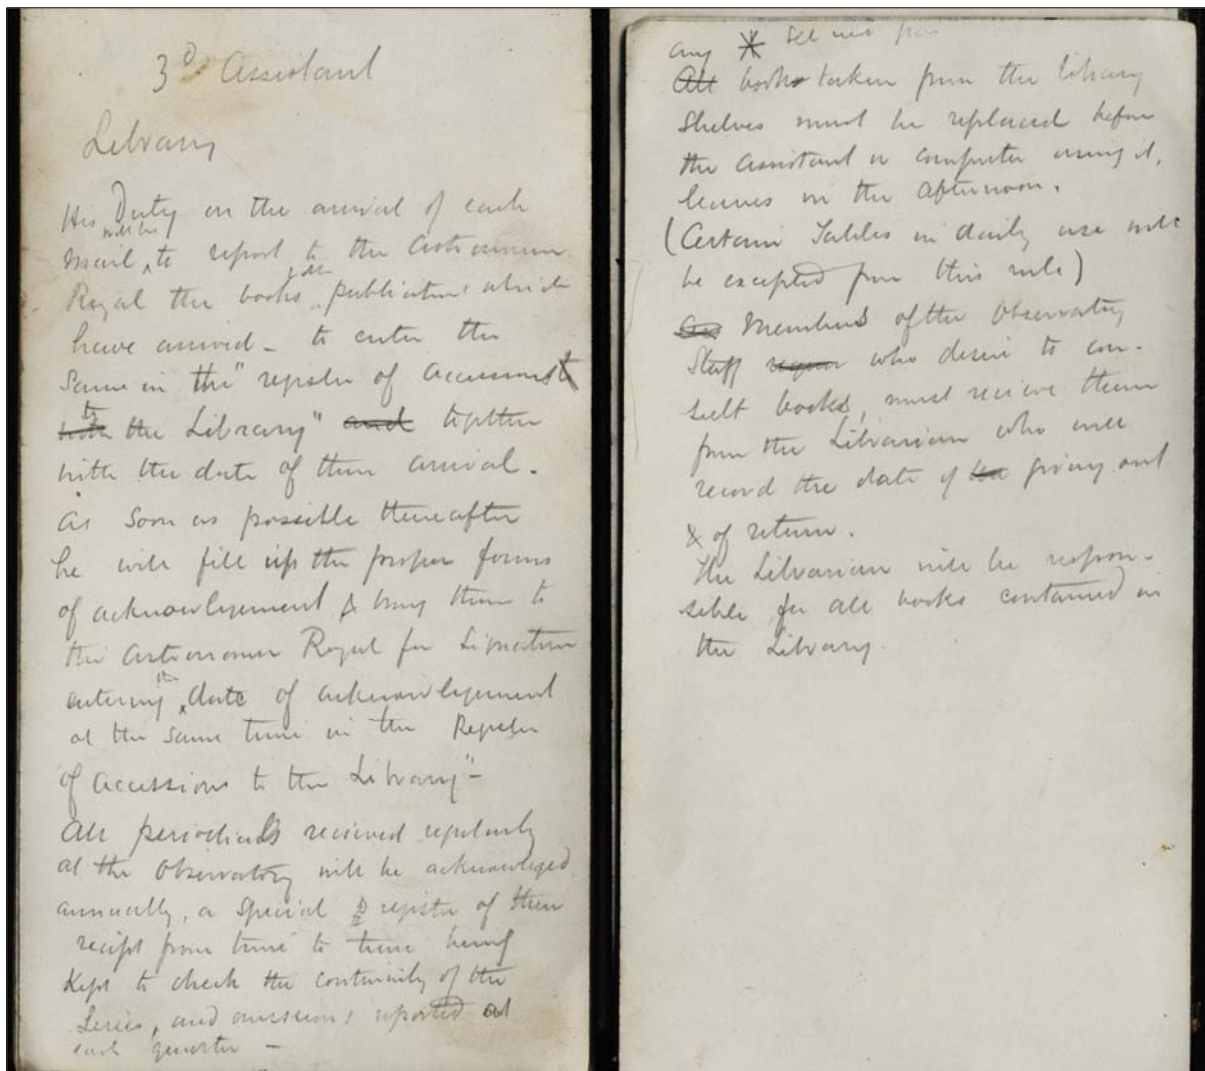 3d Assistant
Library
His Duty on the arrival of each
mail, will be to report to the Astronomer
Royal the books & other publications which
have arrived - to enter the
same in the "register of accessions
to the Library" and together
with the date of their arrival.
As soon as possible thereafter
he will fill up the proper forms
of acknowlegement & bring them to
the Astronomer Royal for Signature
entering the date of acknowlegement
at the same time in the Register
of Accessions to the Library" -
All periodicals recieved regularly
at the Observatory will be acknowleged
annually, a Special register of their
reciept from time to time being
Kept to check the continuity of the
Series, and omissions reported at
each quarter -
any See next
All books taken from the library
Shelves must be replaced before
the assistant or computer using it,
leaves in the afternoon.
(Certain Tables in daily use will
be excepted from this rule)
Members of the Observatory
Staff who desire to con-
sult books, must recieve them
from the Librarian who will
record the date of the giving out
& of return.
The Librarian will be respon-
sible for all books contained in
the Library.